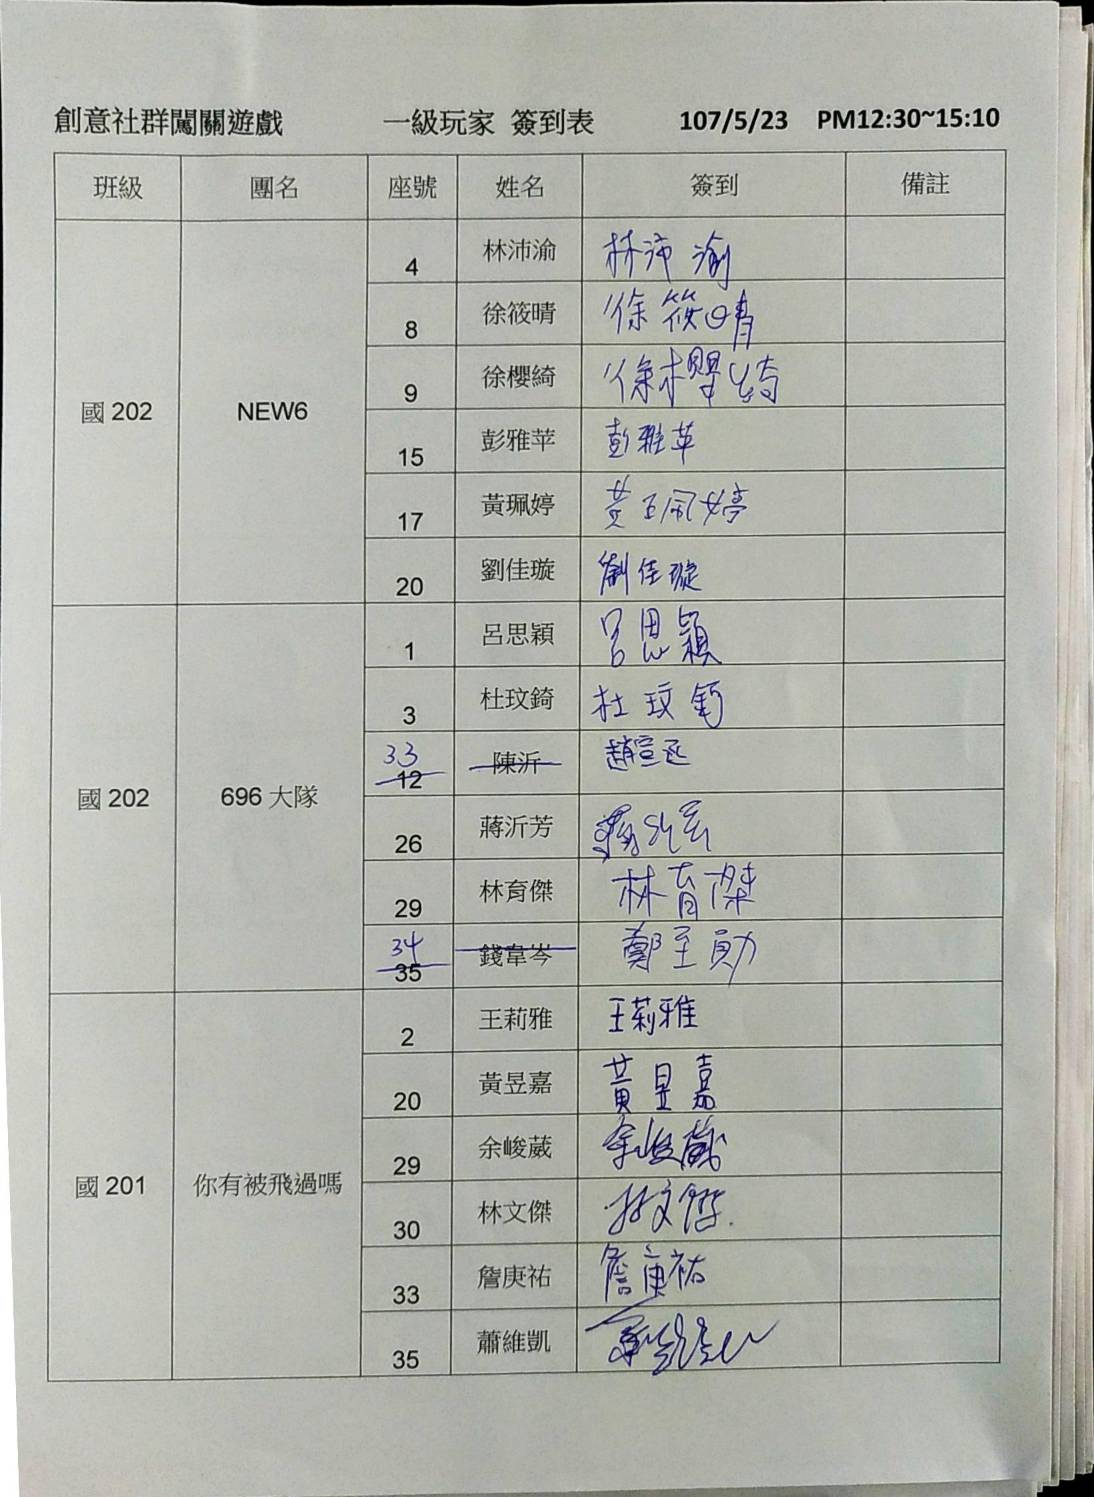 創意社群闖關遊戲 一級玩家 簽到表 107/5/23 PM12:30~15:10
班級 團名 座號 姓名 簽到 備註
國 202 NEW6
4 林沛渝 林沛渝
8 徐筱晴 徐筱晴
9 徐櫻綺 徐櫻綺
15 彭雅苹 彭雅苹
17 黃珮婷 黃珮婷
20 劉佳璇 劉佳璇
國 202 696 大隊
1 呂思穎 呂思穎
3 杜玟錡 杜玟錡
33 12 陳沂 趙宣丞
26 蔣沂芳 蔣沂芳
29 林育傑 林育傑
34 35 錢韋岑 鄭至勛
國 201 你有被飛過嗎
2 王莉雅 王莉雅
20 黃昱嘉 黃昱嘉
29 余峻葳 余峻葳
30 林文傑 林文傑
33 詹庚祐 詹庚祐
35 蕭維凱